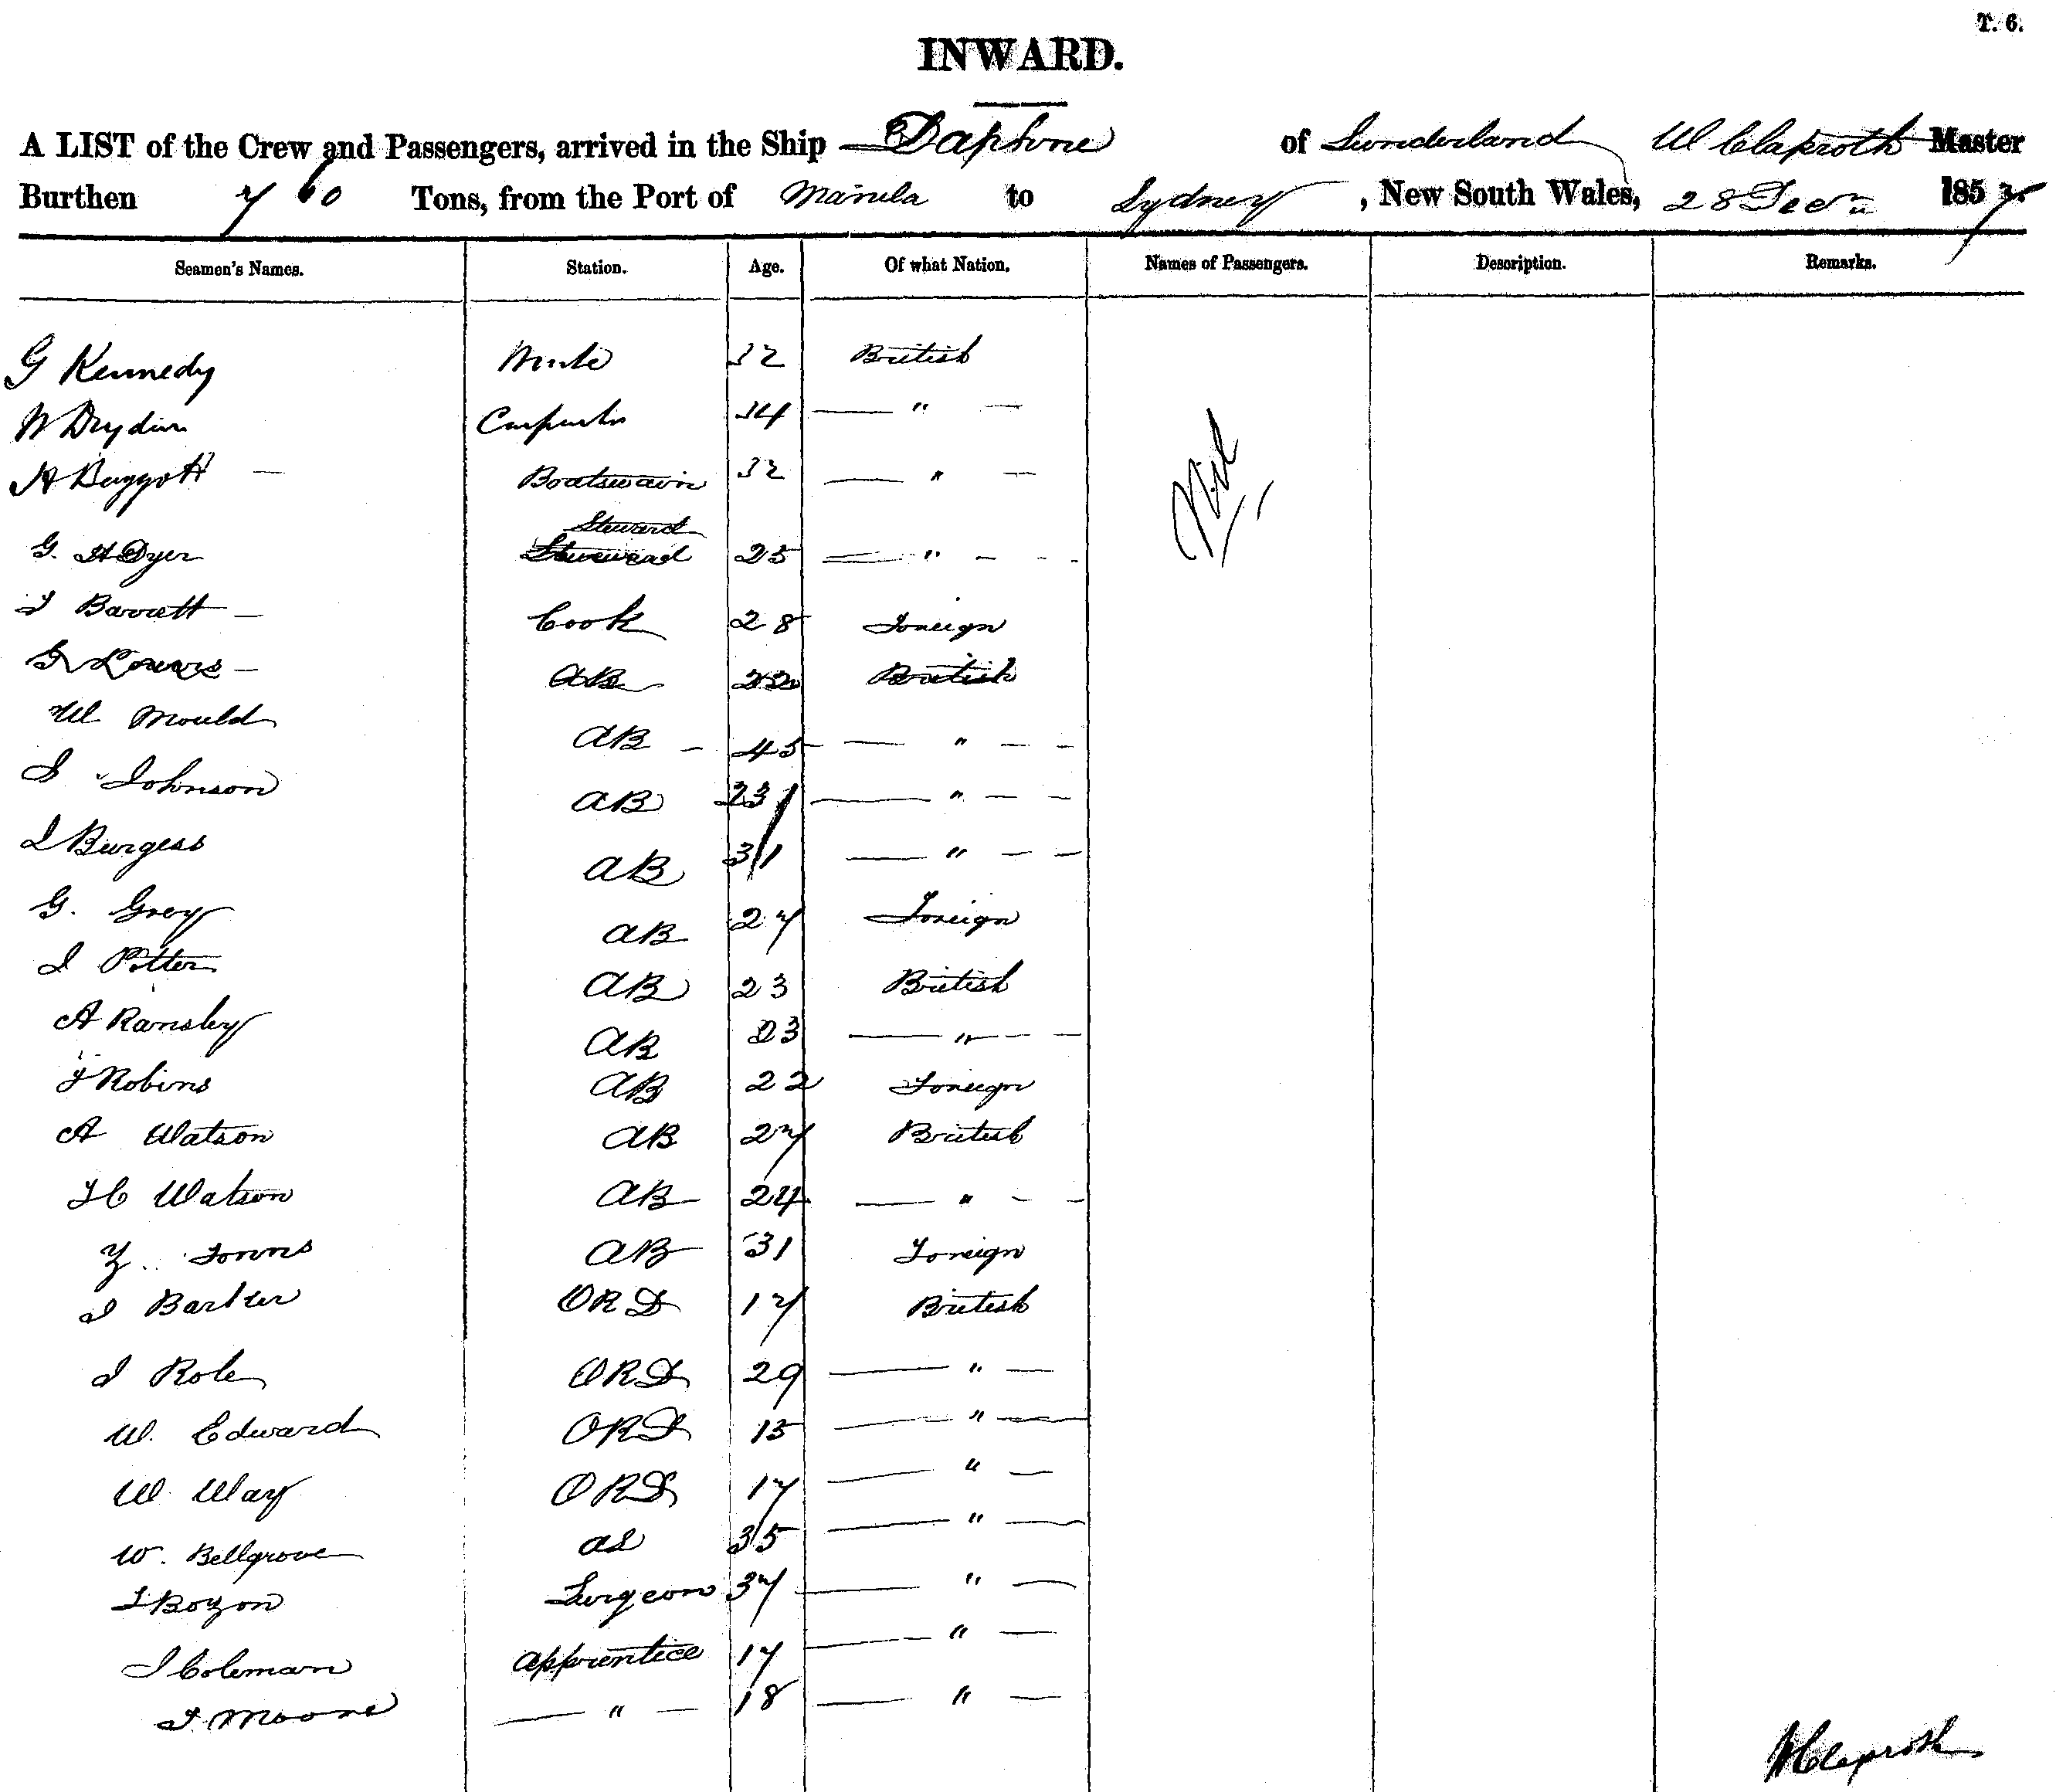 T. 6.
INWARD.
A LIST of the Crew and Passengers, arrived in the Ship Daphne of Sunderland W Claproth Master
Burthen 760 Tons, from the Port of Manila to Sydney, New South Wales, 28 Decr 1857
Seamen's Names. Station. Age. Of what Nation. Names of Passengers. Description. Remarks.
G Kennedy Mate 32 British
W Dryden Carpenter 34 — " —
H Baggott — Boatswain 32 — " —
Steward
G. H Dyer 25 — " — -
Barratt — Cook 28 Foreign
G — AB 22 British
W Mould AB - 45 — " — -
J Johnson AB 23 — " — —
J Burgess AB 31 — " — —
G. Grey AB 27 Foreign
J Potter AB 23 British
A Ransley AB 23 — " — —
F Robins AB 22 Foreign
A Watson AB 27 British
H C Watson AB 24 — " - -
AB 31 Foreign
J Barker ORD 17 British
J Role ORD 29 — " —
W. Edward ORD 15 — " —
W. Way ORD 17 — " —
W. Bellgrove 35 — " —
Bozon Surgeon 37 — " —
J Coleman apprentice 17 — " —
Moore — " — 18 — " —
Nil
W Claproth